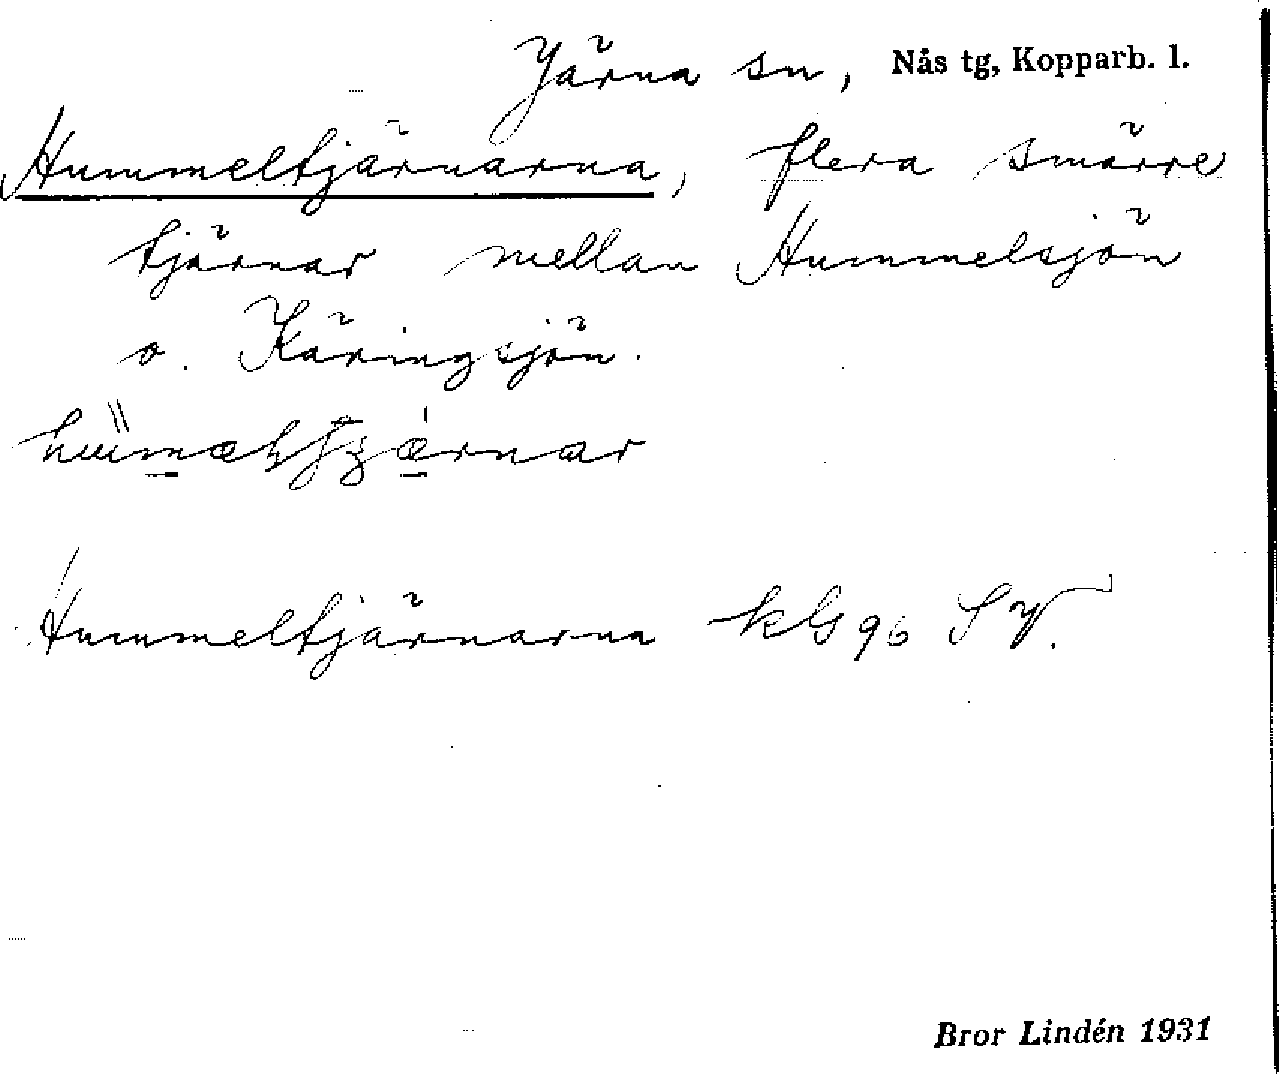 Järna sn, Nås tg, Kopparb. l.
Hummeltjärnarna, flera smärre
tjärnar mellan Hummelsjön
o. Käringsjön.
Hummeltjärnarna kbl 96 SV.
Bror Lindén 1931